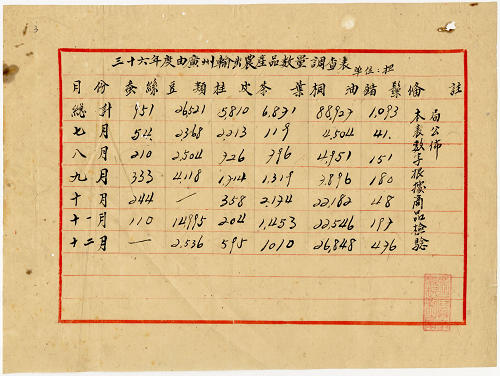 三十六年度由廣州輸出農產品數量調查表 單位:担
月份 蚕絲 豆類 桂皮 茶葉 桐油 豬鬃 備註
總計 951 26521 5,810 6,831 88,927 1,093 本表數字根據商品檢驗局公佈
七月 54 2368 2,213 119 4,504 41
八月 210 2,504 726 796 4,951 151
九月 333 4,118 1714 1,319 7,896 180
十月 244 — 358 2,134 22,182 48
十一月 110 14,995 204 1,453 22,546 197
十二月 — 2,536 595 1010 26,848 476